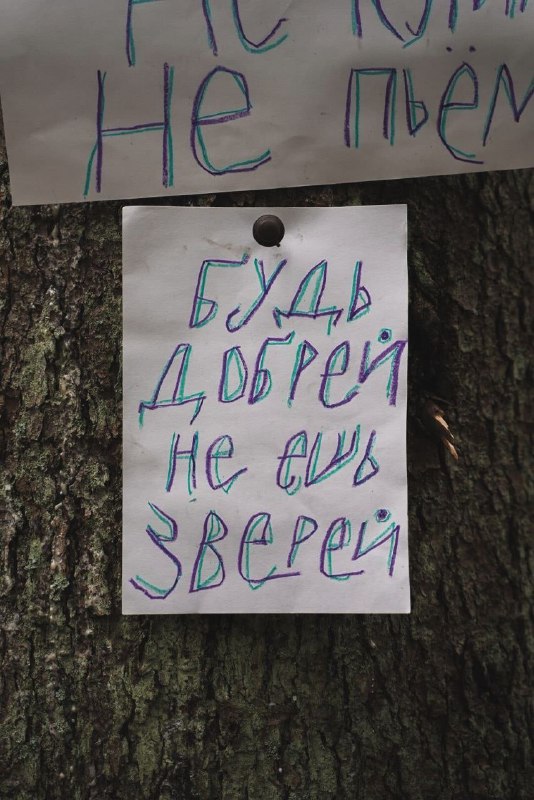 не
не пьём
Будь
добрей
не ешь
зверей